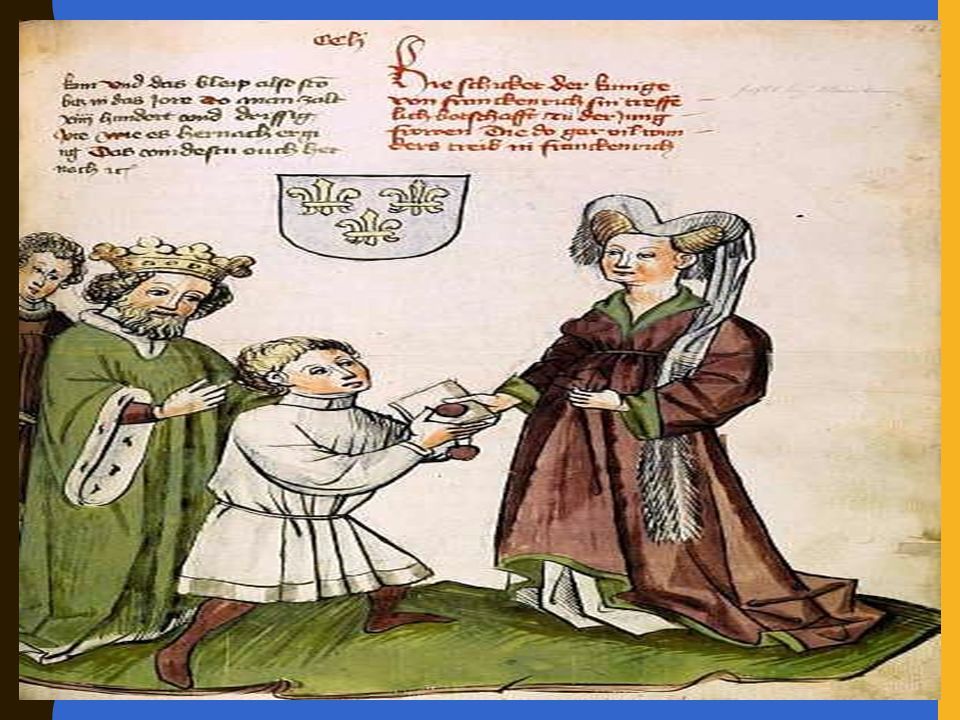 kam vnd das bleip also sto
in das Jore do man zalt
hundert vnd drissig
wie es hernach ergi
ng Das vindestu ouch her
noch
Hie schicket der kunige
von franckenrich sin treffe
lich botschafft zu der Jung
frowen Die do gar vil wun
ders treib in franckenrich